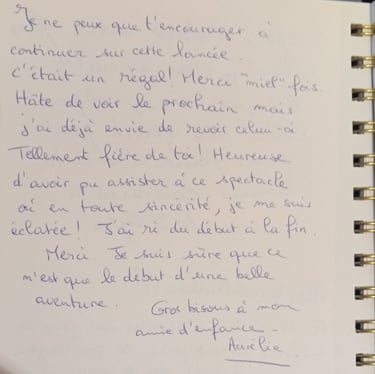 Je ne peux que t'encourager à
continuer sur cette lancée.
C'était un régal! Merci "miel" fois.
Hâte de voir le prochain mais
j'ai déjà envie de revoir celui-ci.
Tellement fière de toi! Heureuse
d'avoir pu assister à ce spectacle
où en toute sincérité, je me suis
éclatée! J'ai ri du début à la fin.
Merci. Je suis sûre que ce
n'est que le début d'une belle
aventure.
Gros bisous à mon
amie d'enfance -
Aurélie